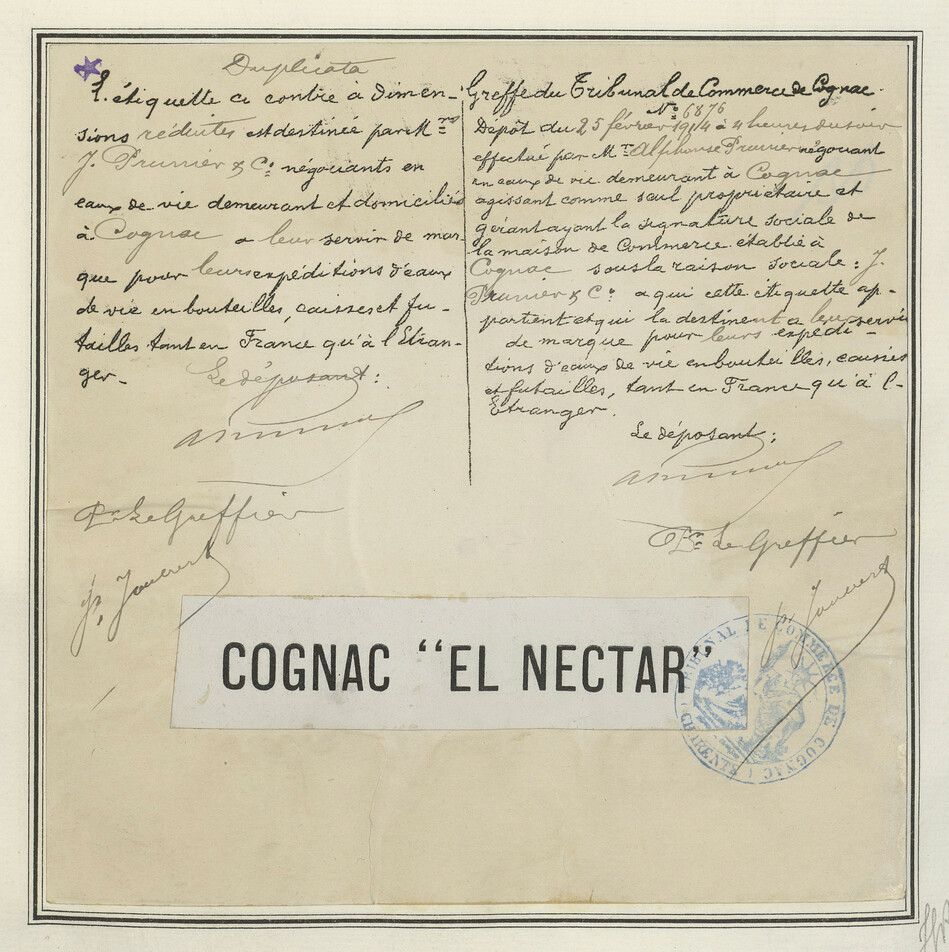 Duplicata
L'étiquette ci contre a dimen-
sions réduites est destinée par Mrs
J. Prunier & Co négociants en
eaux de vie demeurant et domiciliés
à Cognac a leur servir de mar-
que pour leurs expéditions d'eaux
de vie en bouteilles, caisses et fu-
tailles tant en France qu'à l'Etran-
ger.
Le déposant:
Pr Le Greffier
Greffe du Tribunal de Commerce de Cognac.
No 6876
Dépôt du 25 février 1914 à 4 heures du soir
effectué par Mr Alphonse Prunier négociant
en eaux de vie demeurant à Cognac
agissant comme seul propriétaire et
gérant ayant la signature sociale de
la maison de Commerce établie à
Cognac sous la raison sociale: J.
Prunier & Co a qui cette étiquette ap-
partient et qui la destinent a leur servir
de marque pour leurs expédi-
tions d'eaux de vie en bouteilles, caisses
et futailles, tant en France qu'à l'-
Etranger.
Le déposant:
Pr Le Greffier
COGNAC "EL NECTAR"
TRIBUNAL DE COMMERCE DE COGNAC
(CHARENTE)